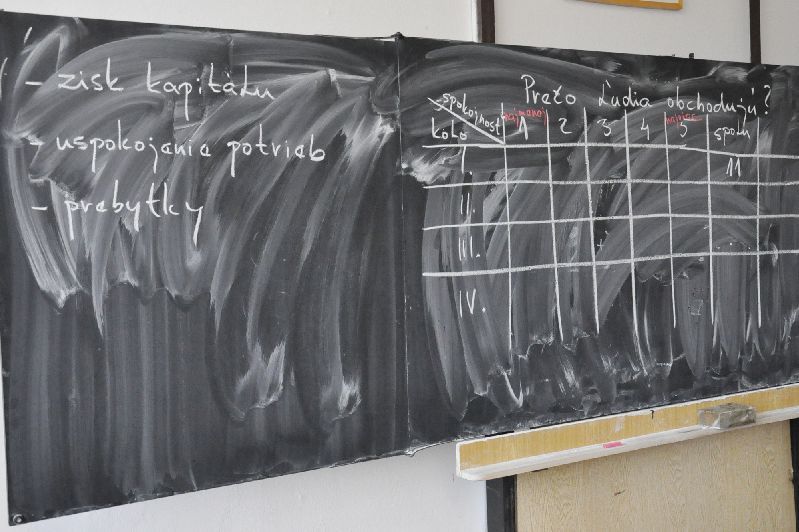 - zisk kapitálu
- uspokojania potrieb
- prebytky
Prečo Ľudia obchodujú?
spokojnosť
kolo
najmenej
1 2 3 4 5 spolu
najviac
I. 11
II.
III.
IV.